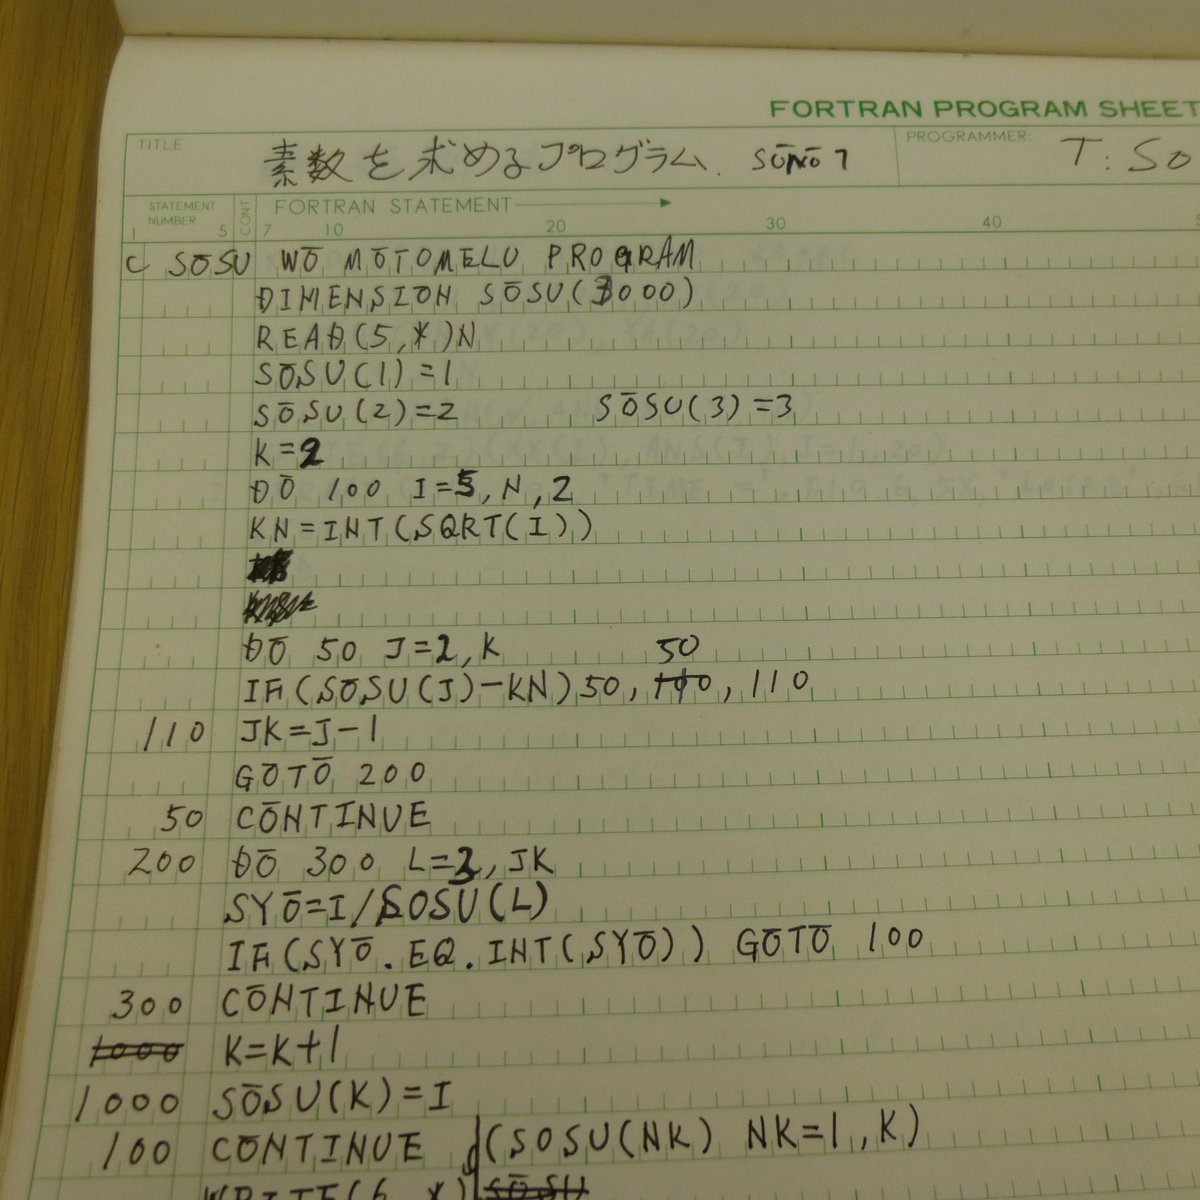 FORTRAN PROGRAM SHEET
TITLE 素数を求めるプログラム. SŌNŌ 7 PROGRAMMER: T. SO
STATEMENT NUMBER CONT FORTRAN STATEMENT
1 5 7 10 20 30 40
C SŌSU WŌ MŌTŌMELU PRŌGRAM
DIMENSIŌN SŌSU(3000)
READ(5,*)N
SŌSU(1)=1
SŌSU(2)=2 SŌSU(3)=3
K=2
DŌ 100 I=5,N,2
KN=INT(SQRT(I))
DŌ 50 J=2,K 50
IF(SŌSU(J)-KN)50,100,110
110 JK=J-1
GŌTŌ 200
50 CŌNTINUE
200 DŌ 300 L=3,JK
SYŌ=I/SOSU(L)
IF(SYŌ.EQ.INT(SYŌ)) GŌTŌ 100
300 CŌNTINUE
1000 K=K+1
1000 SŌSU(K)=I
100 CŌNTINUE (SOSU(NK) NK=1,K)
WRITE(6,*) SŌSU